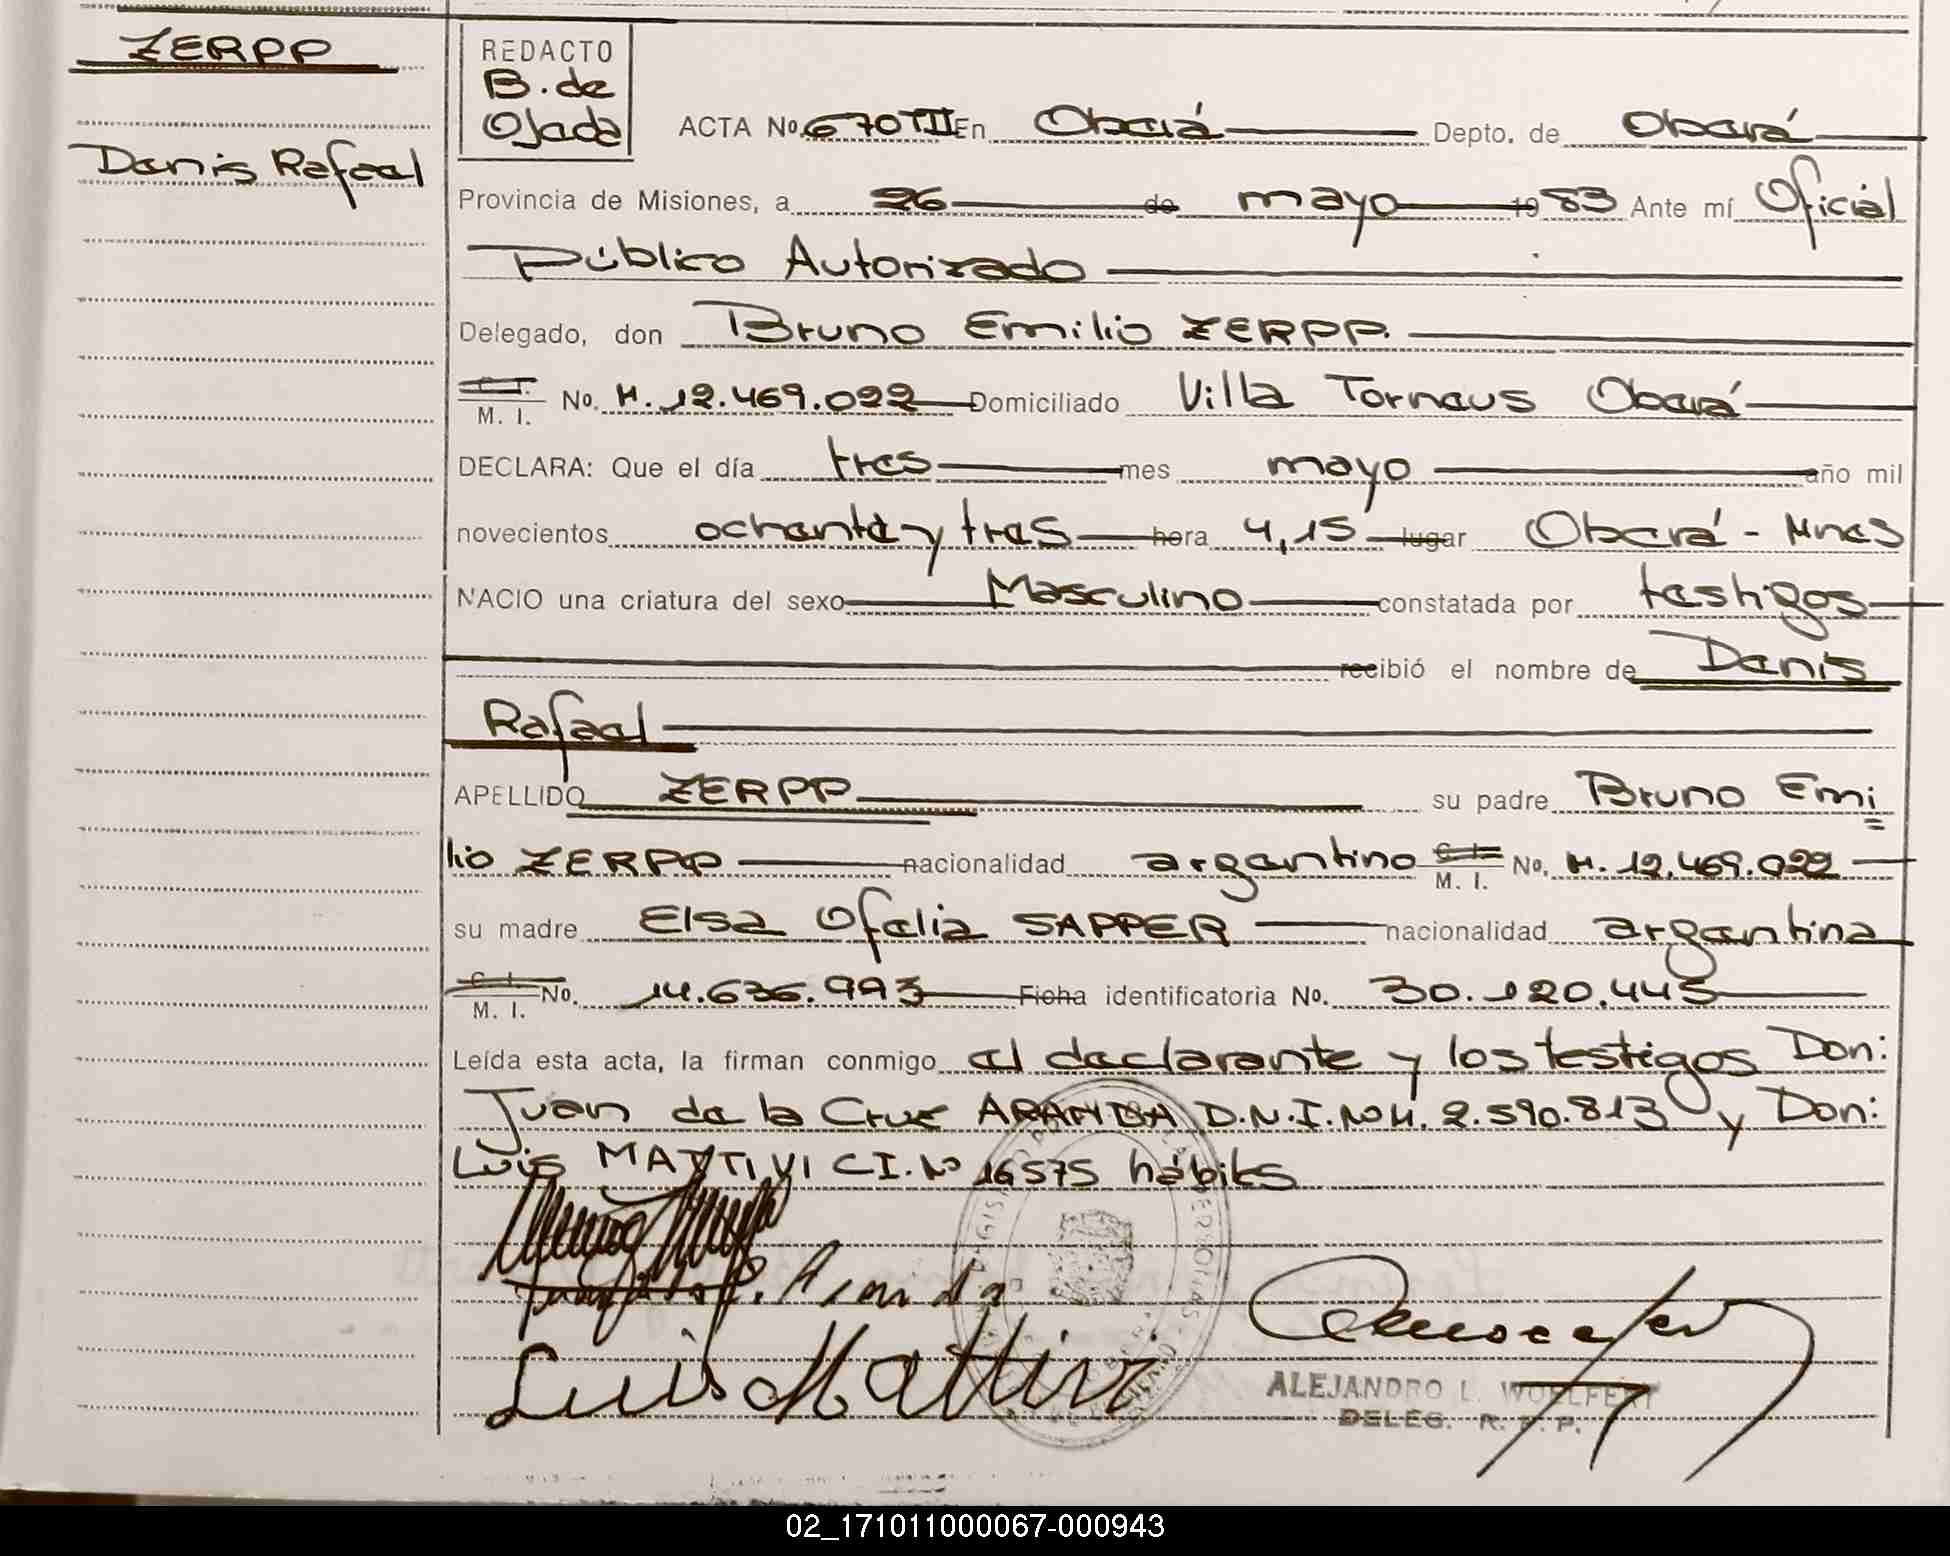 ZERPP
Denis Rafael
REDACTO
B. de
Ojeda
ACTA No. 670 TII En Oberá Depto. de Oberá
Provincia de Misiones, a 26 de mayo 1983 Ante mí Oficial
Público Autorizado
Delegado, don Bruno Emilio ZERPP.
C. I. M. I. No. M. 12.469.022 Domiciliado Villa Torneus Oberá
DECLARA: Que el día tres mes mayo año mil
novecientos ochenta y tres hora 4,15 lugar Oberá - Mnes
NACIO una criatura del sexo Masculino constatada por testigos
recibió el nombre de Denis
Rafael
APELLIDO ZERPP su padre Bruno Emi
lio ZERPP nacionalidad argentino C. I. M. I. No. M. 12.469.022
su madre Elsa Ofelia SAPPER nacionalidad argentina
C. I. M. I. No. 14.636.993 Ficha identificatoria No. 30.120.445
Leída esta acta, la firman conmigo el declarante y los testigos Don:
Juan de la Cruz ARANDA D.N.I. No M. 2.590.813 y Don:
Luis MATTIVI C.I. No 16575 hábiles
Aranda
Luis Mattivi
ALEJANDRO L. WOELFERT
DELEG. R. P. P.
02_171011000067-000943